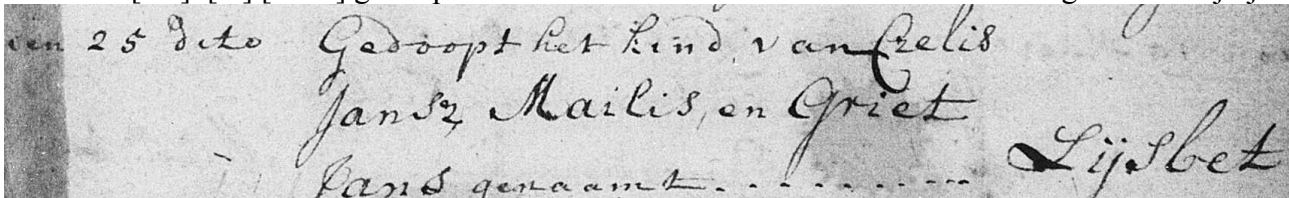 den 25 dito Gedoopt het kind van Crelis
Jansz Mailis, en Griet
Jans genaamt . . . . . . . . . . Lijsbet